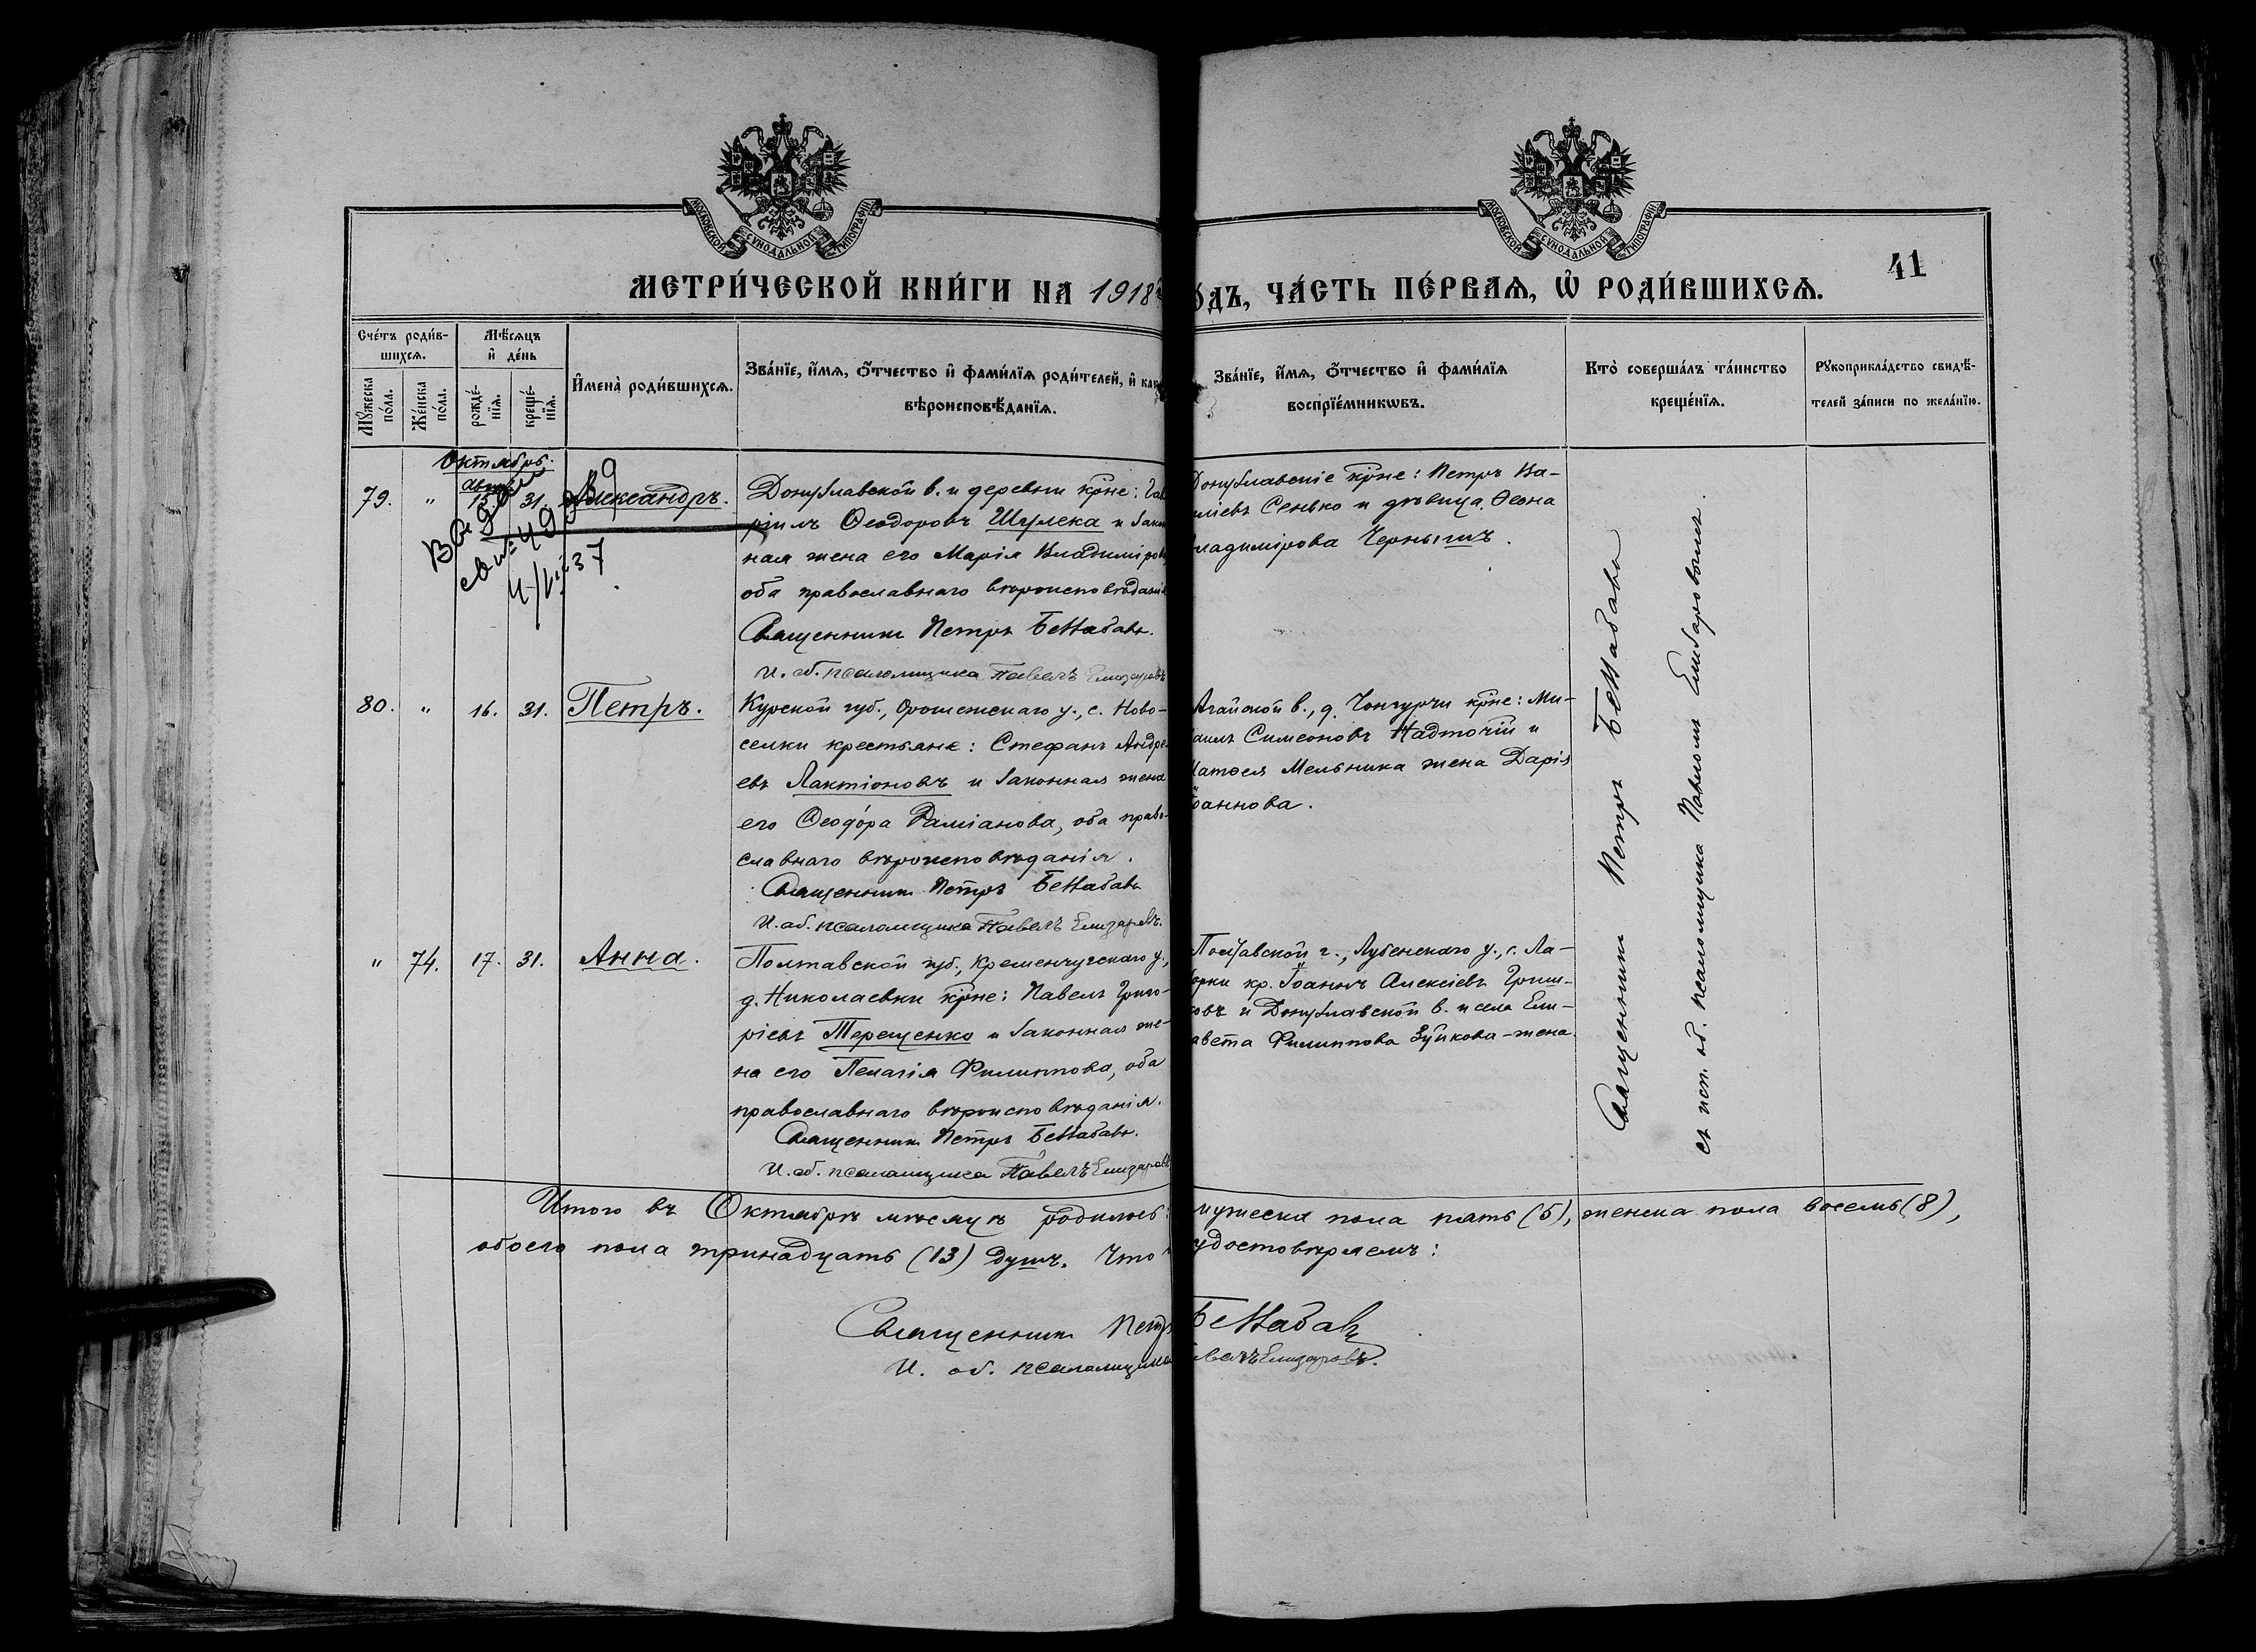 МОСКОВСКОЙ СѴНОДАЛЬНОЙ ТИПОГРАФІИ
МОСКОВСКОЙ СѴНОДАЛЬНОЙ ТИПОГРАФІИ
41
МЕТРИ́ЧЕСКОЙ КНИ́ГИ НА 1918
О́ДЪ, ЧА́СТЬ ПЕ́РВАЯ, Ѡ҆ РОДИ́ВШИХСЯ.
Сче́тъ роди́вшихся.
Мꙋ́жеска по́ла.
Же́нска по́ла.
Мѣ́сяцъ и҆ де́нь
рожде́нїя.
креще́нїя.
И҆мена̀ роди́вшихся.
Зва́нїе, и҆́мя, ѻ҆́тчество и҆ фами́лїя роди́телей, и҆ как
вѣроисповѣ́данїя.
Зва́нїе, и҆́мя, ѻ҆́тчество и҆ фами́лїя
воспрїе́мникѡвъ.
Кто̀ соверша́лъ та́инство
креще́нїя.
Рꙋкоприкла́дство свидѣ́-
телей за́писи по жела́нїю.
Октябрь.
79. " 15. 31. Александръ.
49
37
Донузлавской в. и деревни кр҃не: Гав
ріилъ Ѳеодоровъ Шулека и закон
ная жена его Марія Владимірова
оба православнаго вѣроисповѣданія
Священникъ Петръ
И. об. псаломщика Павелъ Елизаровъ
Донузлавскіе кр҃не: Петръ Ва-
иліевъ Сенько и дѣвица Ѳеона
ладимірова Чернышъ.
80. " 16. 31. Петръ.
Курской губ., у., с. Ново-
селки крестьяне: Стефанъ Андре-
евъ Лактіоновъ и законная жена
его Ѳеодора Даміанова, оба право-
славнаго вѣроисповѣданія.
Священникъ Петръ
И. об. псаломщика Павелъ Елизаровъ.
Агайской в., д. Чонгурчи кр҃не: Ми-
аилъ Симеоновъ Надточій и
Матѳея Мельника жена Дарія
Іоаннова.
" 74. 17. 31. Анна.
Полтавской губ., Кременчугскаго у.,
д. Николаевки кр҃не: Павелъ Григо-
ріевъ Терещенко и законная же-
на его Пелагія Филиппова, оба
православнаго вѣроисповѣданія.
Священникъ Петръ
И. об. псаломщика Павелъ Елизаровъ
Полтавской г., Лубенскаго у., с. Ла-
орки кр. Іоаннъ Алексіевъ Гриш-
овъ и Донузлавской в. и села Ели-
авета Филиппова Зуйкова-жена.
Священникъ Петръ
съ исп. об. псаломщика Павломъ Елизаровымъ.
Итого въ Октябрѣ мѣсяцѣ родилось: мужеска пола пять (5), женска пола восемь (8),
обоего пола тринадцать (13) душъ. Что удостовѣряемъ:
Священникъ Петръ
И. об. псаломщика авелъ Елизаровъ.